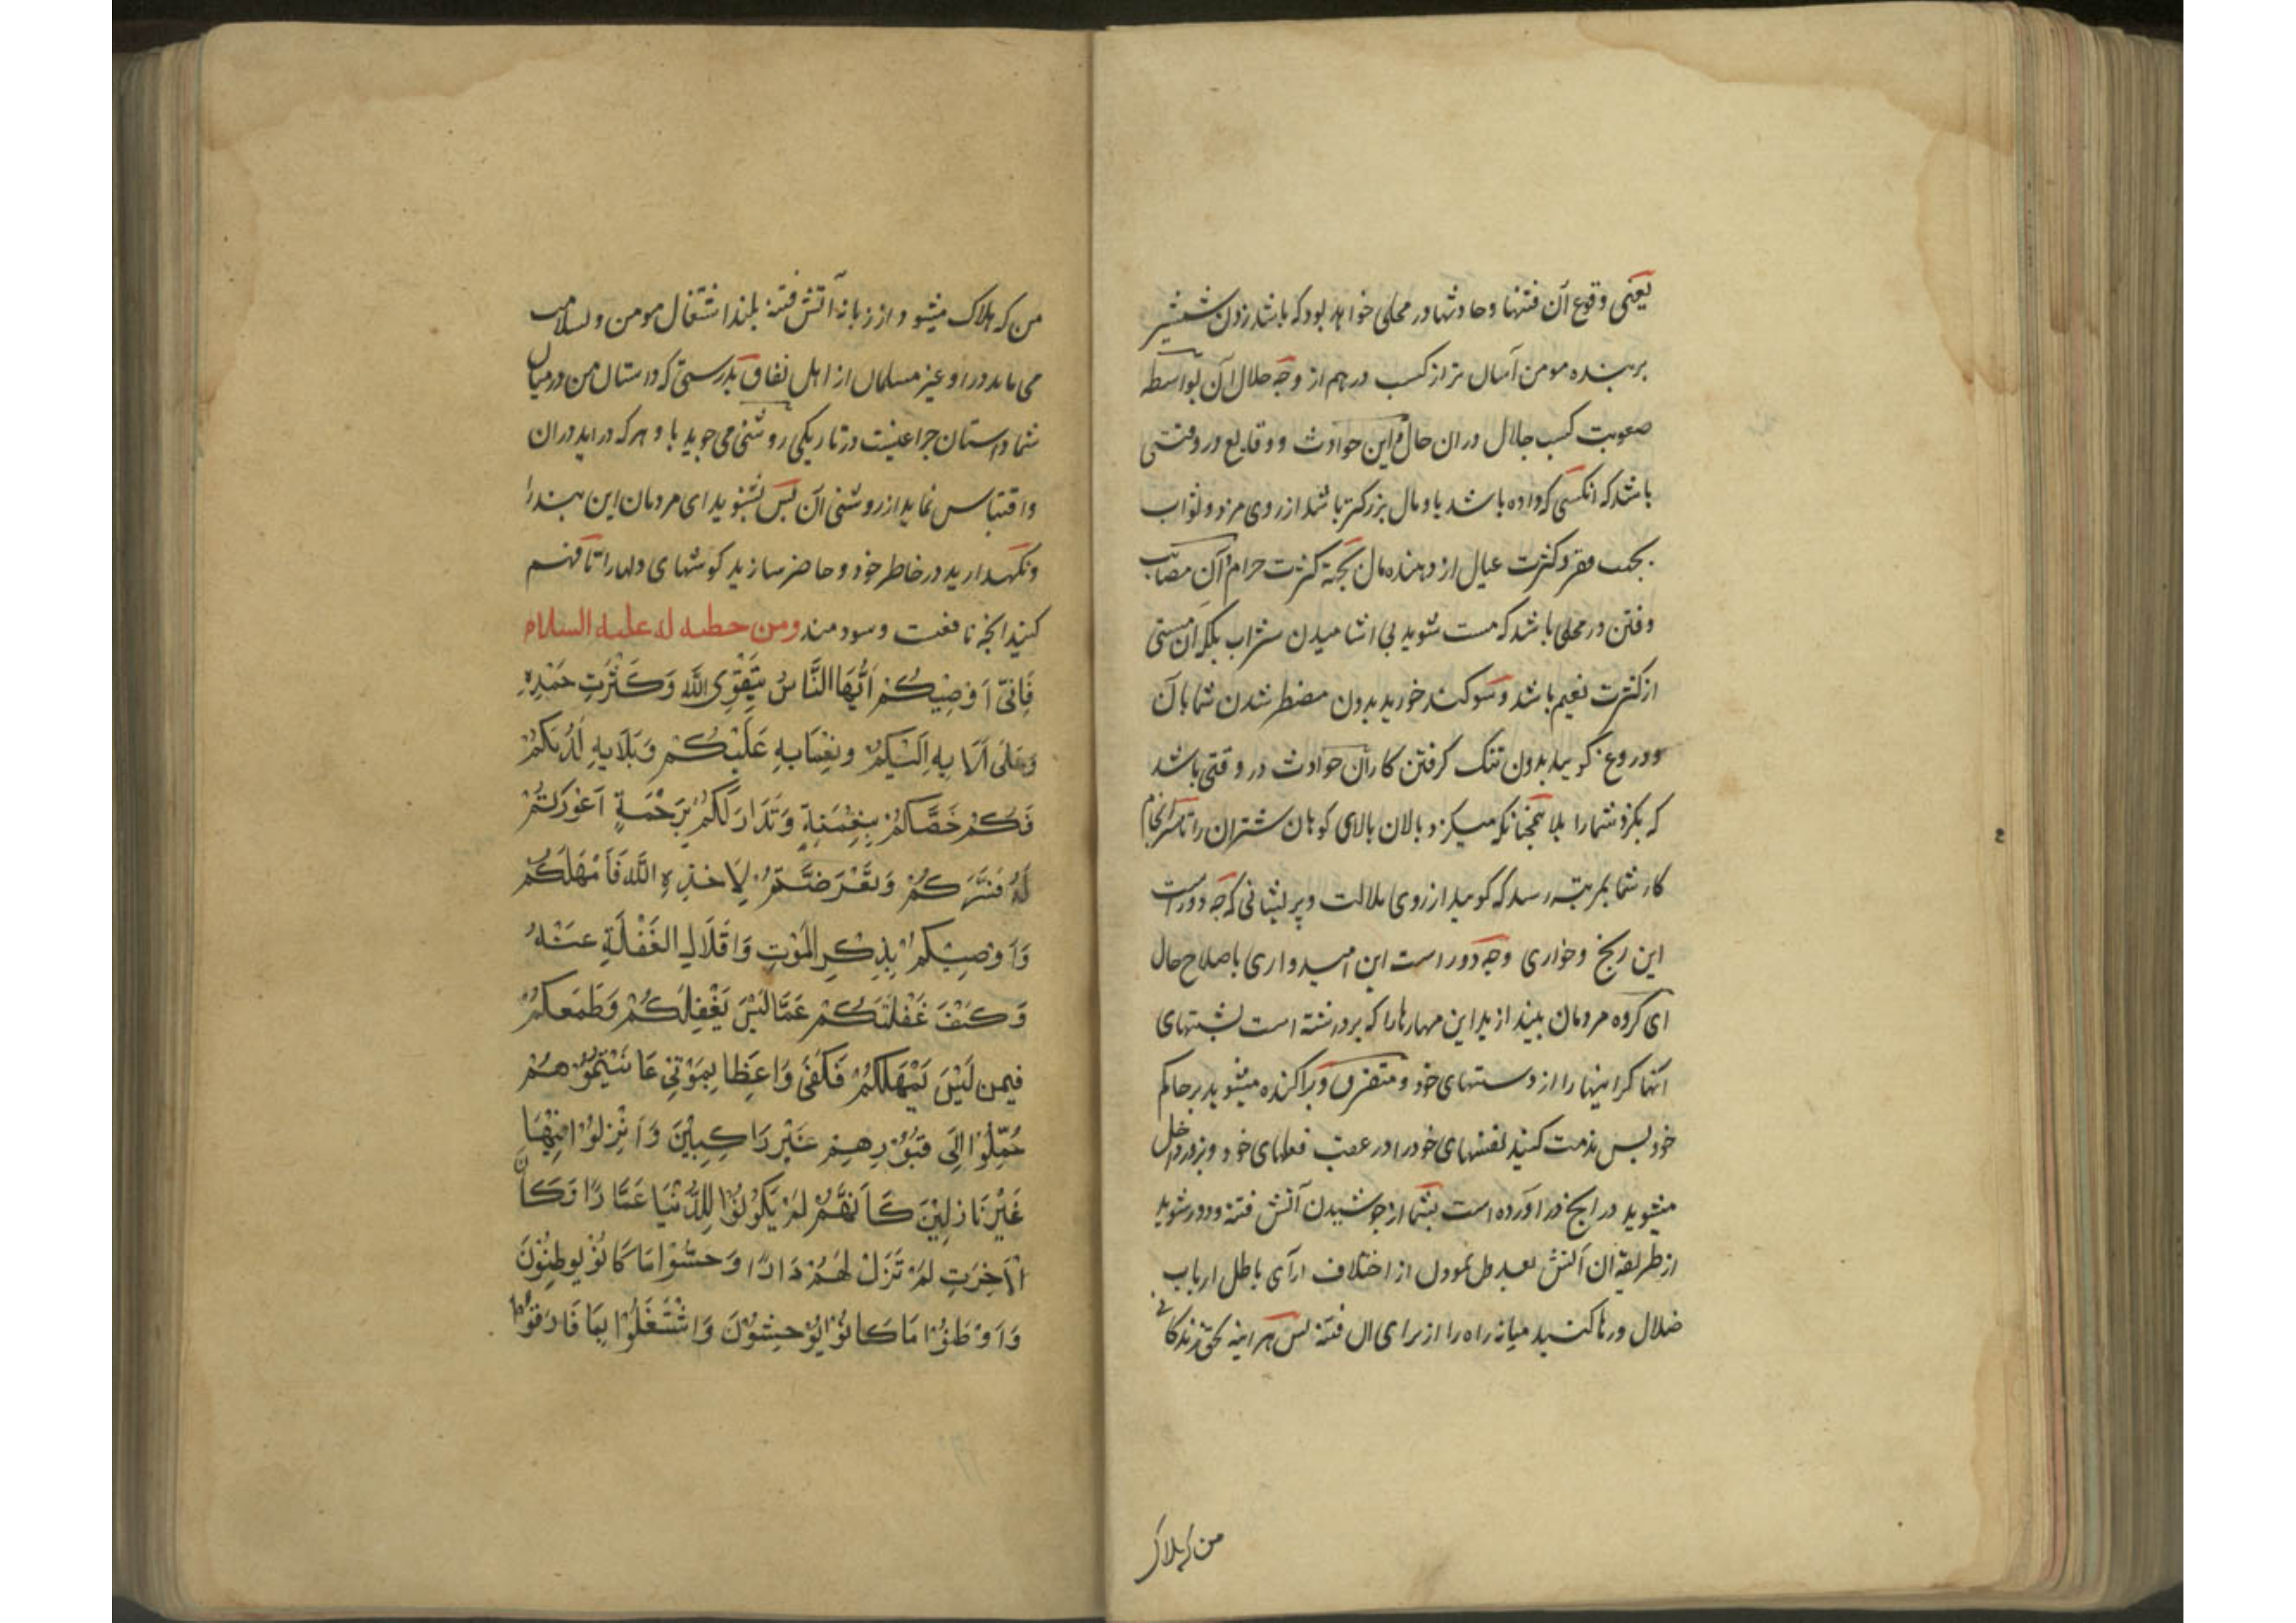 یعنی وقوع آن فتنها و حادثها در محلی خواهد بود که باشد زدن شمشیر
بر بنده مومن آسان تر از کسب درهم از وجه حلال آن بواسطه
صعوبت کسب حلال در ان حال و این حوادث و وقایع در وقتی
باشد که انکسی که داده باشد باو مال بزرکتر باشد از روی مزد و ثواب
بجهت فقر و کثرت عیال از دهنده مال بجهة کثرت حرام و آن مصائب
و فتن در محلی باشد که مست شوید بی اشامیدن شراب بلکه آن مستی
از کثرت نعیم باشد و سوکند خورید بدون مضطر شدن شما بآن
و دروغ کویید بدون تنک کرفتن کار و آن حوادث در وقتی باشد
که بکزد شما را بلا همچنانکه میکزد بالان بالای کوهان شتران را تا سرانجام
کار شما بمرتبه رسد که کویید از روی ملالت و پریشانی که چه دور است
این رنج و خواری و چه دور است این امیدواری باصلاح حال
ای کروه مردمان بیندازید این مهارها را که برداشته است پشتهای
آنها کرانیها را از دستهای خود و متفرق و پراکنده میشوید بر حاکم
خود پس مذمت کنید نفسهای خود را در عقب فعلهای خود و بزور داخل
میشوید در انچه فرا آورده است بشما از جوشیدن آتش فتنه و دور شوید
از طریقه ان آتش بعدول نمودن از اختلاف ارآی باطل ارباب
ضلال و رها کنید میانه راه را از برای ان فتنه پس هر اینه بحق زندکانی
من که هلاک
من که هلاک میشود از زبانه آتش فتنه بلند اشتغال مومن و بسلامت
می ماند در او غیر مسلمان از اهل نفاق بدرستی که داستان من در میان
شما داستان چراغیست در تاریکی روشنی می جوید باو هر که در اید در ان
و اقتباس نماید از روشنی آن پس بشنوید ای مردمان این پند را
و نکهدارید در خاطر خود و حاضر سازید کوشهای دلها را تا فهم
کنید انچه نافعست و سودمند ومن خطبه له علیه السلام
فَاِنّی اُوْصِیْکُمْ اَیُّهَا النَّاسُ بِتَقْوِی اللّٰه وَکَثْرَتِ حَمْدِهِ
وَعَلَی اٰلَایِهِ اِلَیْکُمْ وَنِعْمَایِهِ عَلَیْکُمْ وَبَلَایِهِ لَدُیْکُمْ
فَکُمْ خَصَّکُمْ بِنِعْمَةٍ وَتَدَارَکَکُمْ بِرَحْمَةٍ اَعْوَرْتُمْ
لَهُ فَسَتَرَکُمْ وَتَعَرَّضْتُمْ لِاَخْذِهِ اللّٰه فَاَمْهَلَکُمْ
وَاُوْصِیْکُمْ بِذِکْرِ الْمَوْتِ وَاِقْلَالِ الْغَفْلَةِ عَنْهُ
وَکَیْفَ غَفْلَتُکُمْ عَمَّا لَیْسَ یَغْفِلُکُمْ وَطَمَعُکُمْ
فِیمن لَیْسَ یُمْهِلُکُمْ فَکَفٰی وَاعِظًا بِمَوْتٰی عَایَنْتُمُوْهُمْ
حُمِّلُوْا اِلٰی قُبُوْرِهِمْ غَیْرَ رَاکِبِیْنَ وَاُنْزِلُوْا فِیْهَا
غَیْرَ نَازِلِیْنَ کَاَنَّهُمْ لَمْ یَکُوْنُوْا لِلدُّنْیَا عُمَّارًا وَکَانَ
الْاٰخِرَتِ لَمْ تَزَلْ لَهُمْ دَارًا وَحشُوْا مَا کَانُوْ یُوطِنُوْنَ
وَاَوْطَنُوْا مَا کَانُوْا یُوْحِشُوْنَ وَاشْتَغَلُوْا بِمَا فَارَقُوْا